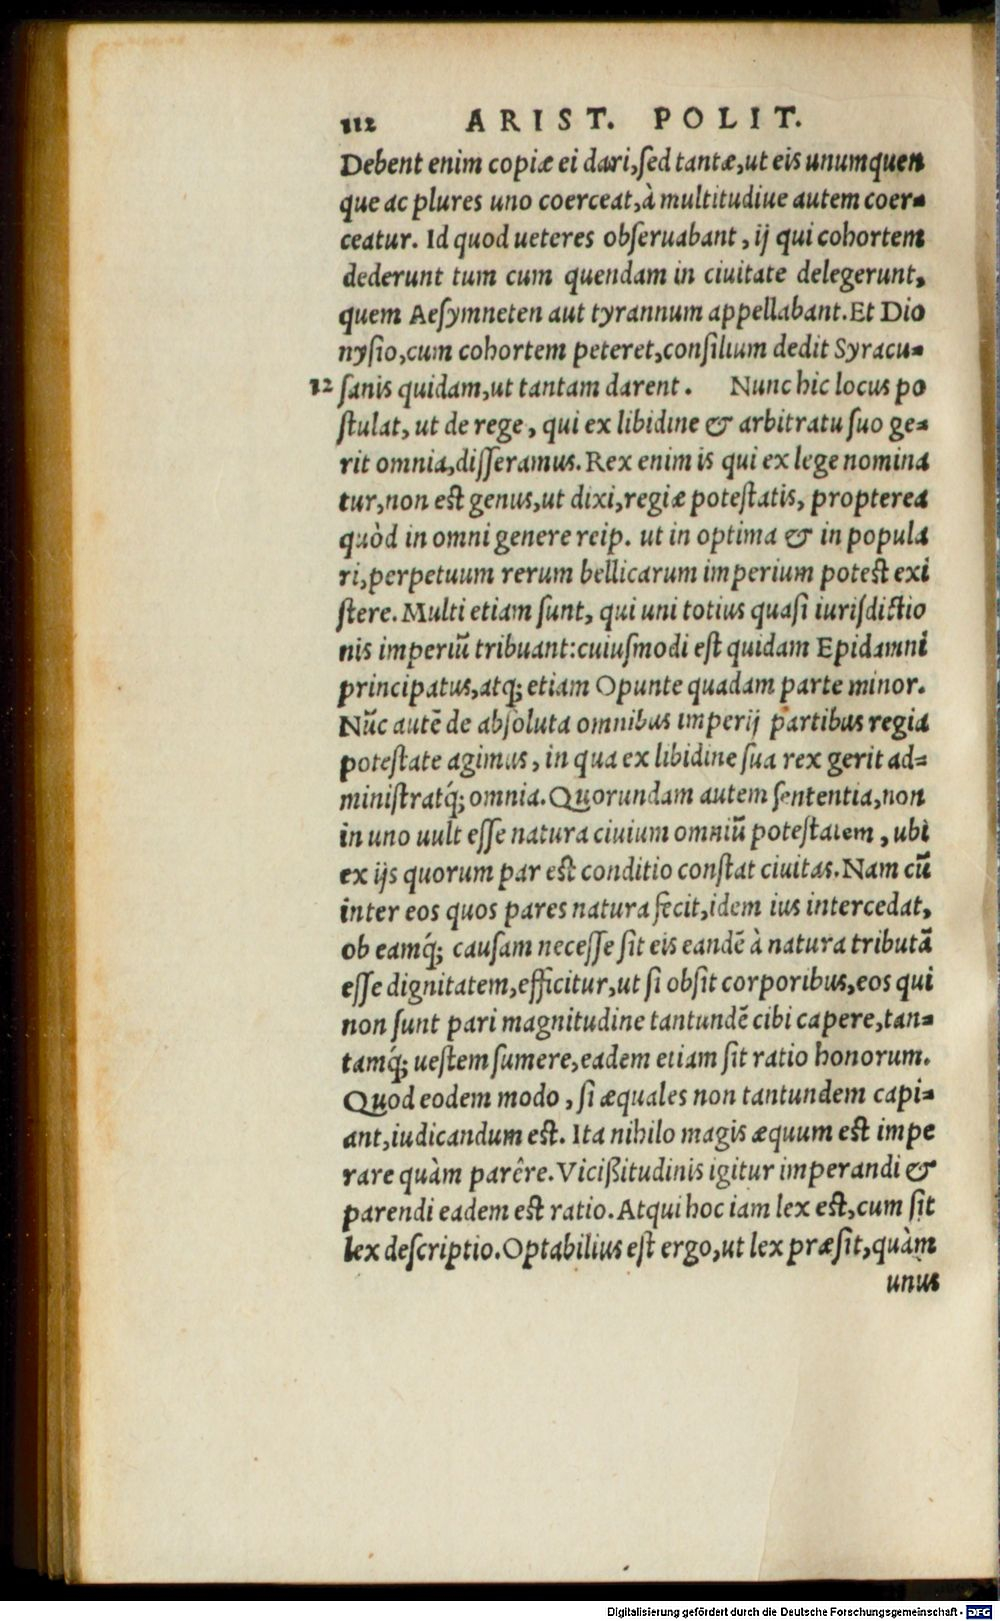 112 ARIST. POLIT.
Debent enim copiæ ei dari,ſed tantæ,ut eis unumquen
que ac plures uno coerceat,à multitudiue autem coer-
ceatur. Id quod ueteres obſeruabant, ij qui cohortem
dederunt tum cum quendam in ciuitate delegerunt,
quem Aeſymneten aut tyrannum appellabant.Et Dio
nyſio,cum cohortem peteret,conſilium dedit Syracu-
12 ſanis quidam,ut tantam darent. Nunc hic locus po
ſtulat, ut de rege, qui ex libidine & arbitratu ſuo ge-
rit omnia,diſſeramus. Rex enim is qui ex lege nomina
tur,non eſt genus,ut dixi,regiæ poteſtatis, propterea
quòd in omni genere reip. ut in optima & in popula
ri,perpetuum rerum bellicarum imperium poteſt exi
ſtere. Multi etiam ſunt, qui uni totius quaſi iuriſdictio
nis imperiū tribuant:cuiuſmodi eſt quidam Epidamni
principatus,atq; etiam Opunte quadam parte minor.
Nūc autē de abſoluta omnibus imperij partibus regia
poteſtate agimus, in qua ex libidine ſua rex gerit ad-
miniſtratq́; omnia. Quorundam autem ſententia,non
in uno uult eſſe natura ciuium omniū poteſtatem, ubi
ex ijs quorum par eſt conditio conſtat ciuitas. Nam cū
inter eos quos pares natura fecit,idem ius intercedat,
ob eamq́; cauſam neceſſe ſit eis eandē à natura tributā
eſſe dignitatem,efficitur,ut ſi obſit corporibus,eos qui
non ſunt pari magnitudine tantundē cibi capere,tan-
tamq́; ueſtem ſumere,eadem etiam ſit ratio honorum.
Quod eodem modo, ſi æquales non tantundem capi-
ant,iudicandum eſt. Ita nihilo magis æquum eſt impe
rare quàm parêre. Viciſsitudinis igitur imperandi &
parendi eadem eſt ratio. Atqui hoc iam lex eſt,cum ſit
lex deſcriptio. Optabilius eſt ergo,ut lex præſit,quàm
unus
Digitalisierung gefördert durch die Deutsche Forschungsgemeinschaft - DFG